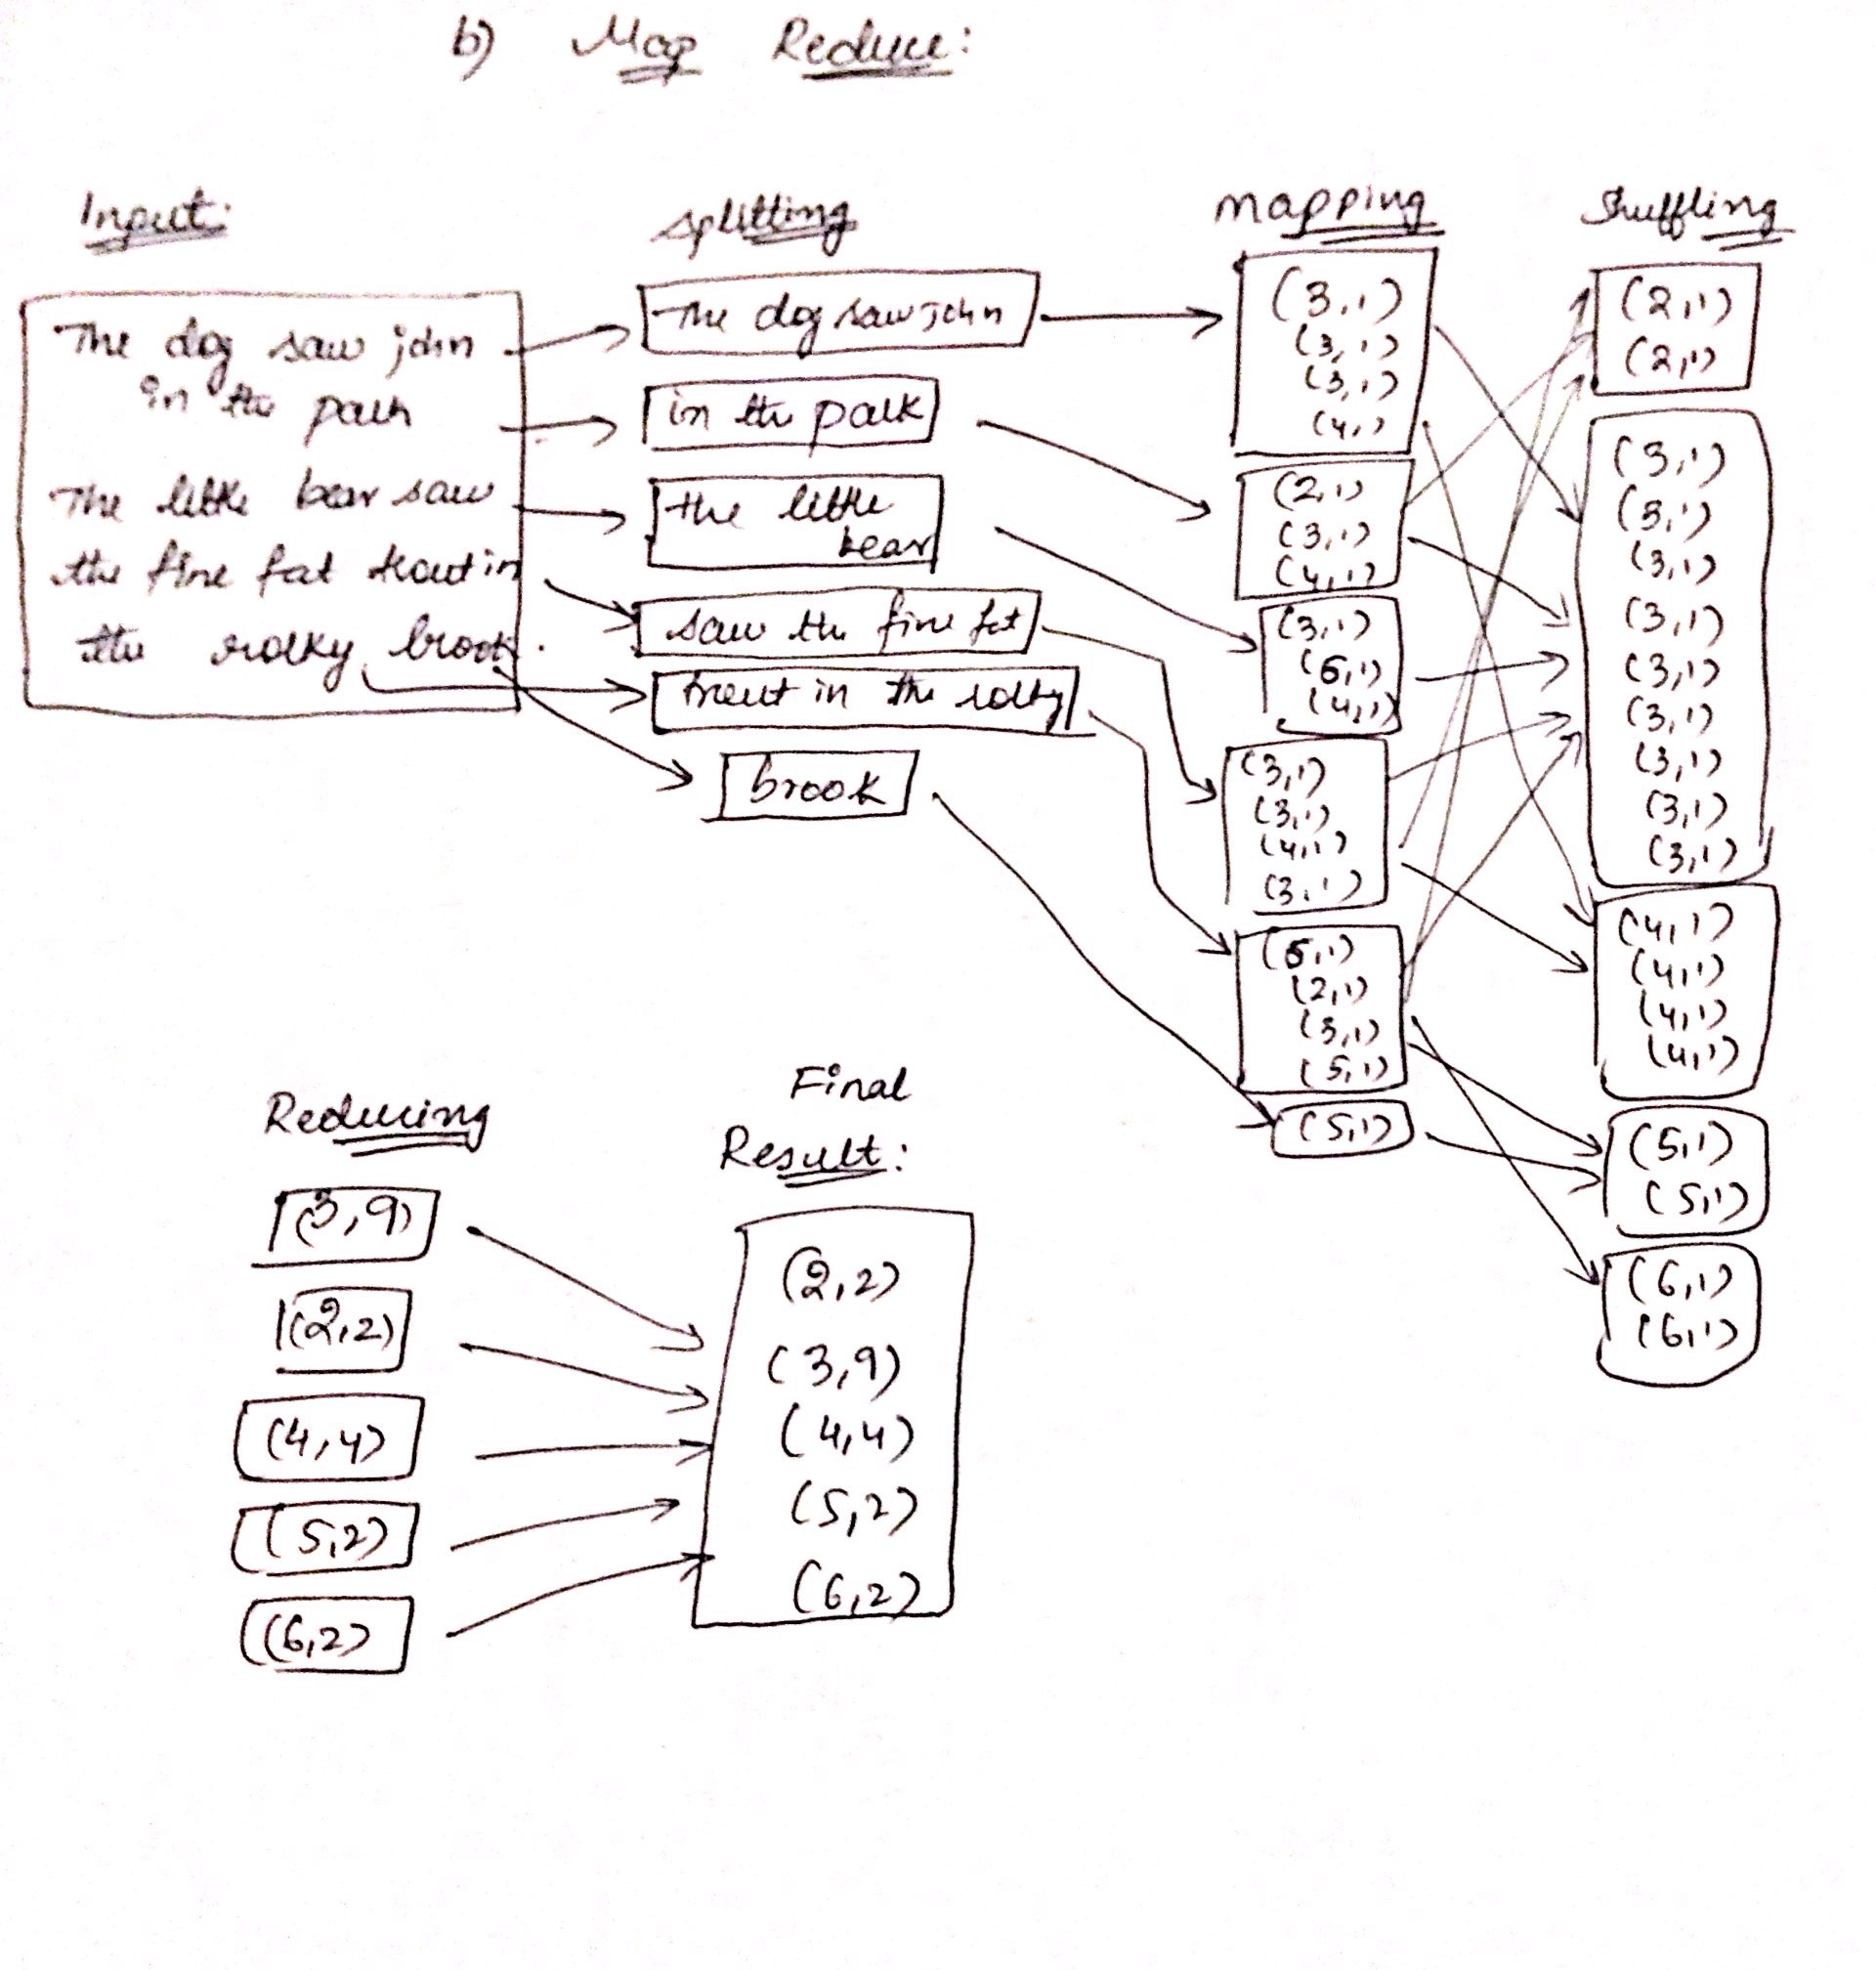 b) Map Reduce:
Input:
The dog saw john
in the path
The little bear saw
the fine fat trout in
the rocky brook.
splitting
The dog saw john
in the park
the little
bear
saw the fine fat
trout in the rocky
brook
mapping
(3,1)
(3,1)
(3,1)
(4,1)
(2,1)
(3,1)
(4,1)
(3,1)
(6,1)
(4,1)
(3,1)
(3,1)
(4,1)
(3,1)
(2,1)
(3,1)
(5,1)
(5,1)
Shuffling
(2,1)
(2,1)
(3,1)
(3,1)
(3,1)
(3,1)
(3,1)
(3,1)
(3,1)
(3,1)
(3,1)
(4,1)
(4,1)
(4,1)
(4,1)
(5,1)
(5,1)
(6,1)
(6,1)
Reducing
(3,9)
(2,2)
(4,4)
(5,2)
(6,2)
Final
Result:
(2,2)
(3,9)
(4,4)
(5,2)
(6,2)